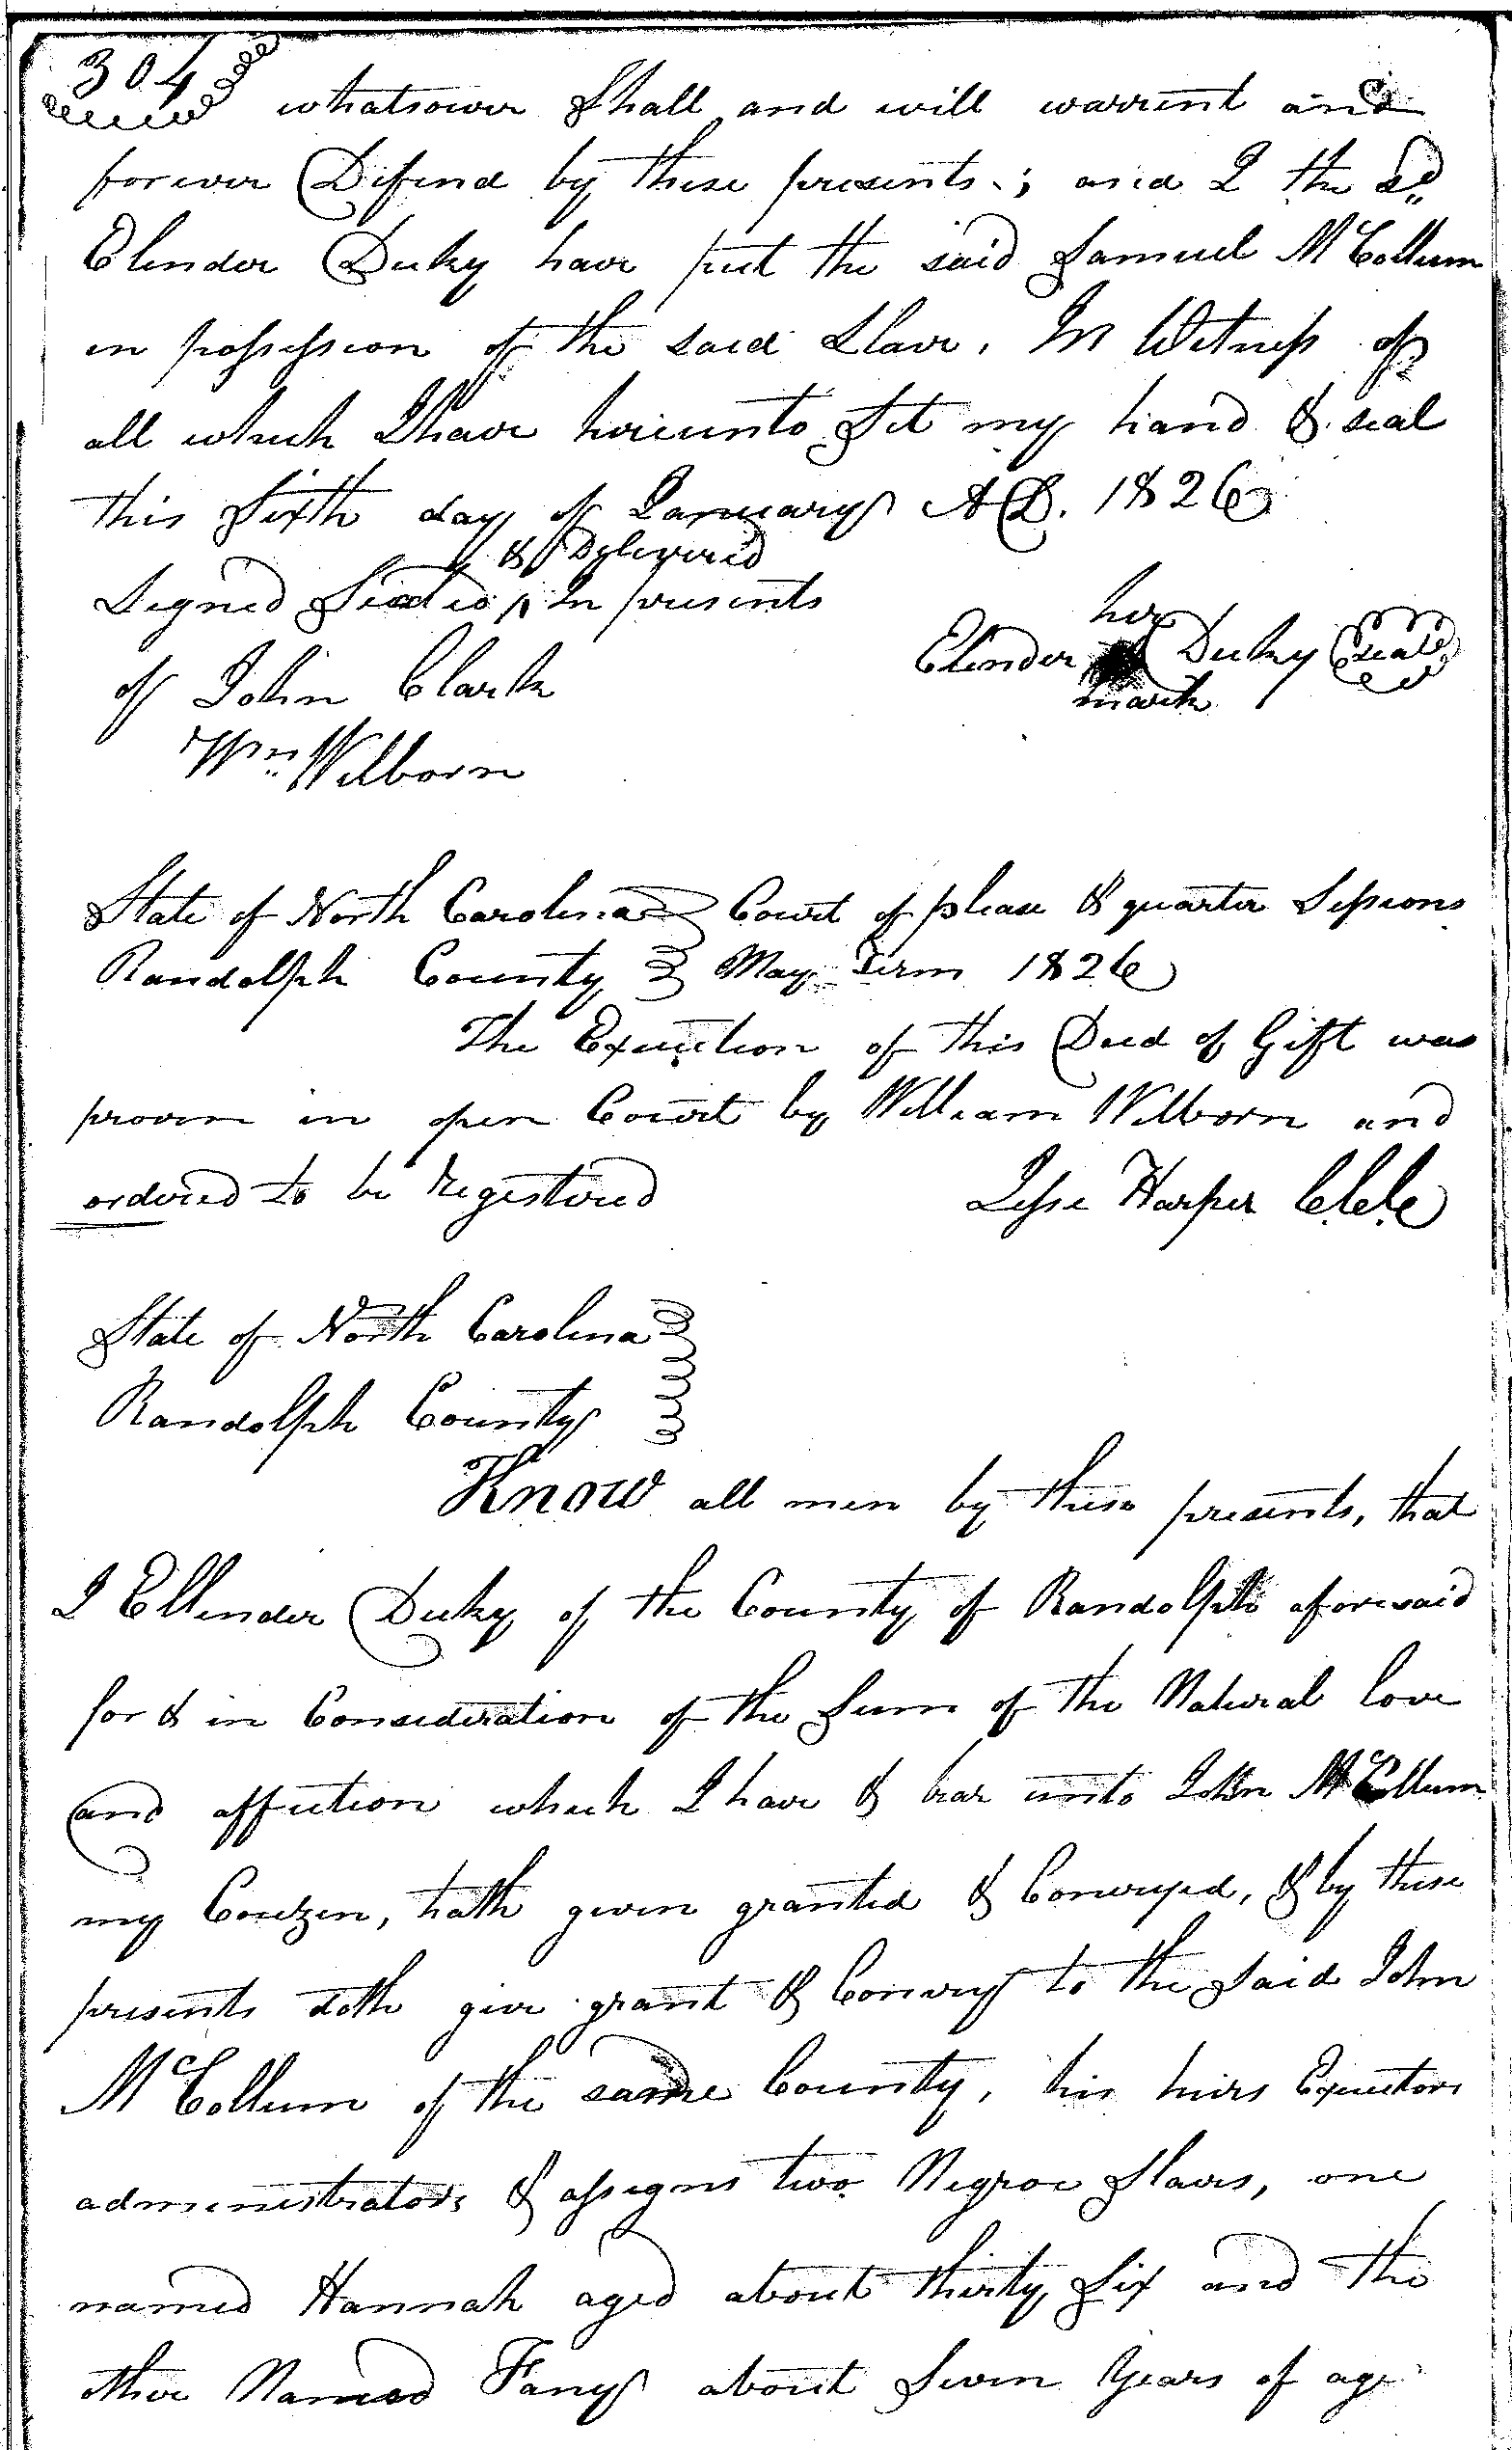 304
whatsower Shall and will warrent and
forever Defend by these presents; and I the Sd
Elender Duky have put the said Samuel McCollum
in possession of the said Slave. In Witness of
all which I have hereunto Set my hand & seal
this Sixth day of January AD. 1826
& Delivered
Signed Sealed ^ In presents
of John Clark
Wm Wilborn
her
Elender Duky (seal)
mark
State of North Carolina } Court of pleas & quarter Sessions
Randolph County } May Term 1826
The Execution of this Deed of Gift was
proven in open Court by William Wilborn and
ordered to be registered Jesse Harper C.C.C.
State of North Carolina }
Randolph County }
Know all men by these presents, that
I Ellender Duky of the County of Randolph aforesaid
for & in Consideration of the Sum of the Natural love
and affection which I have & bear unto John McCollum
my Couzen, hath given granted & Conveyed, & by these
presents doth give grant & Convey to the said John
McCollum of the same County, his heirs Executors
administrators & assigns two Negroe Slaves, one
named Hannah aged about thirty Six and the
other Named Fany about Seven Years of age